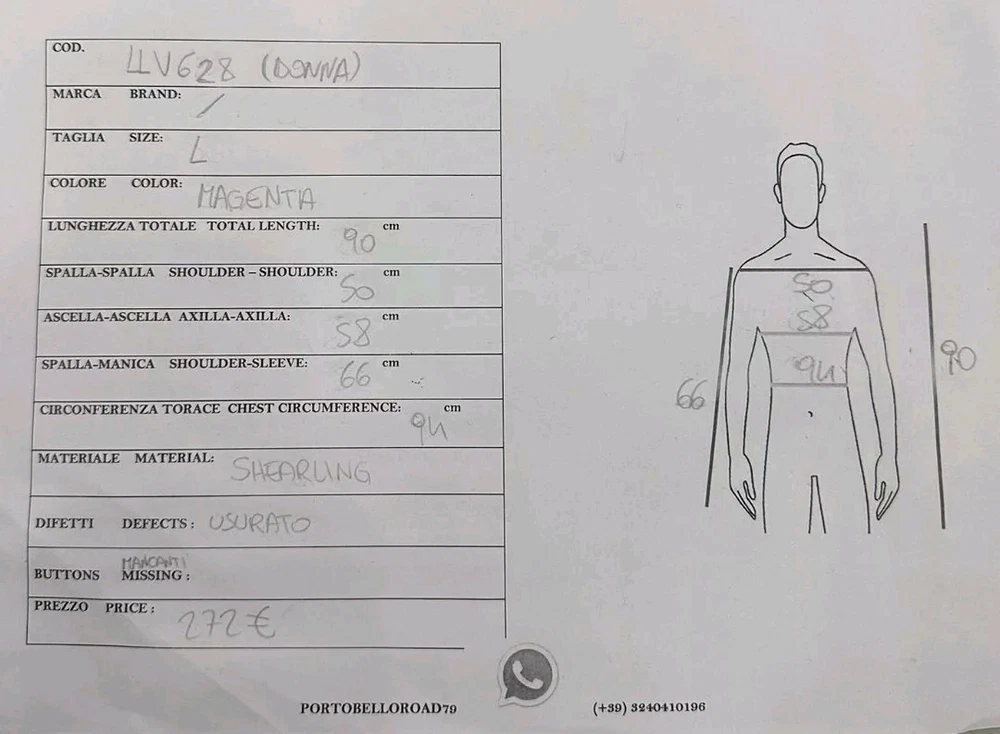 COD. LLV628 (DONNA)
MARCA BRAND: /
TAGLIA SIZE: L
COLORE COLOR: MAGENTA
LUNGHEZZA TOTALE TOTAL LENGTH: 90 cm
SPALLA-SPALLA SHOULDER – SHOULDER: 50 cm
ASCELLA-ASCELLA AXILLA-AXILLA: 58 cm
SPALLA-MANICA SHOULDER-SLEEVE: 66 cm
CIRCONFERENZA TORACE CHEST CIRCUMFERENCE: 94 cm
MATERIALE MATERIAL: SHEARLING
DIFETTI DEFECTS: USURATO
MANCANTI
BUTTONS MISSING:
PREZZO PRICE: 272€
50
58
94
66
90
PORTOBELLOROAD79 (+39) 3240410196